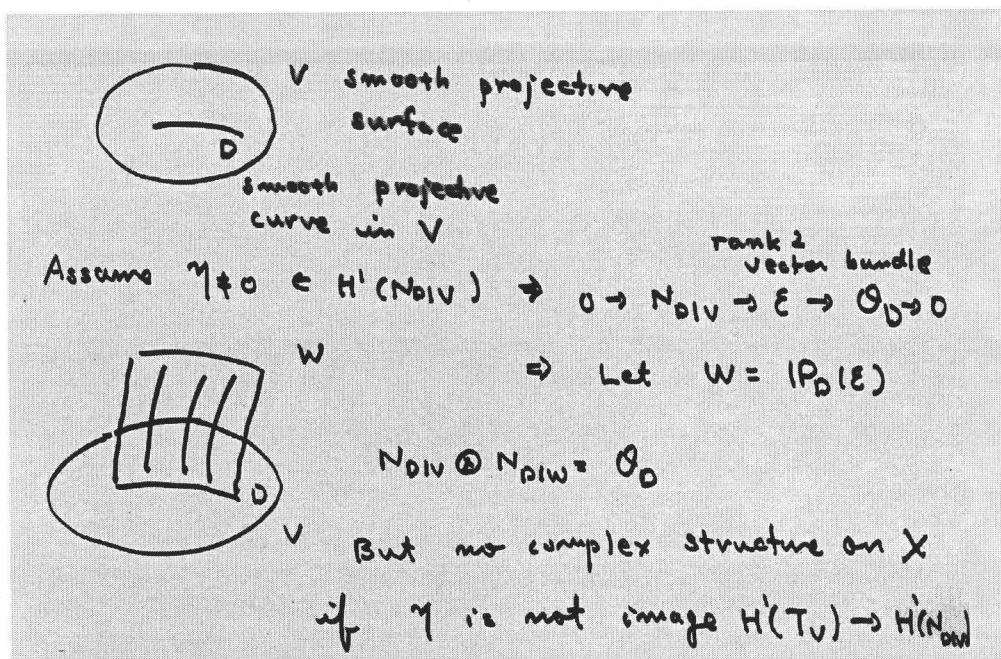 V smooth projective
surface
D
smooth projective
curve in V
rank 2
vector bundle
Assume η ≠ 0 ∈ H'(N_{D|V}) ⇒ 0 → N_{D|V} → ℰ → 𝒪_D → 0
W
⇒ Let W = ℙ_D(ℰ)
N_{D|V} ⊗ N_{D|W} = 𝒪_D
D
V
But no complex structure on X
if η is not image H'(T_V) → H'(N_{D|V})